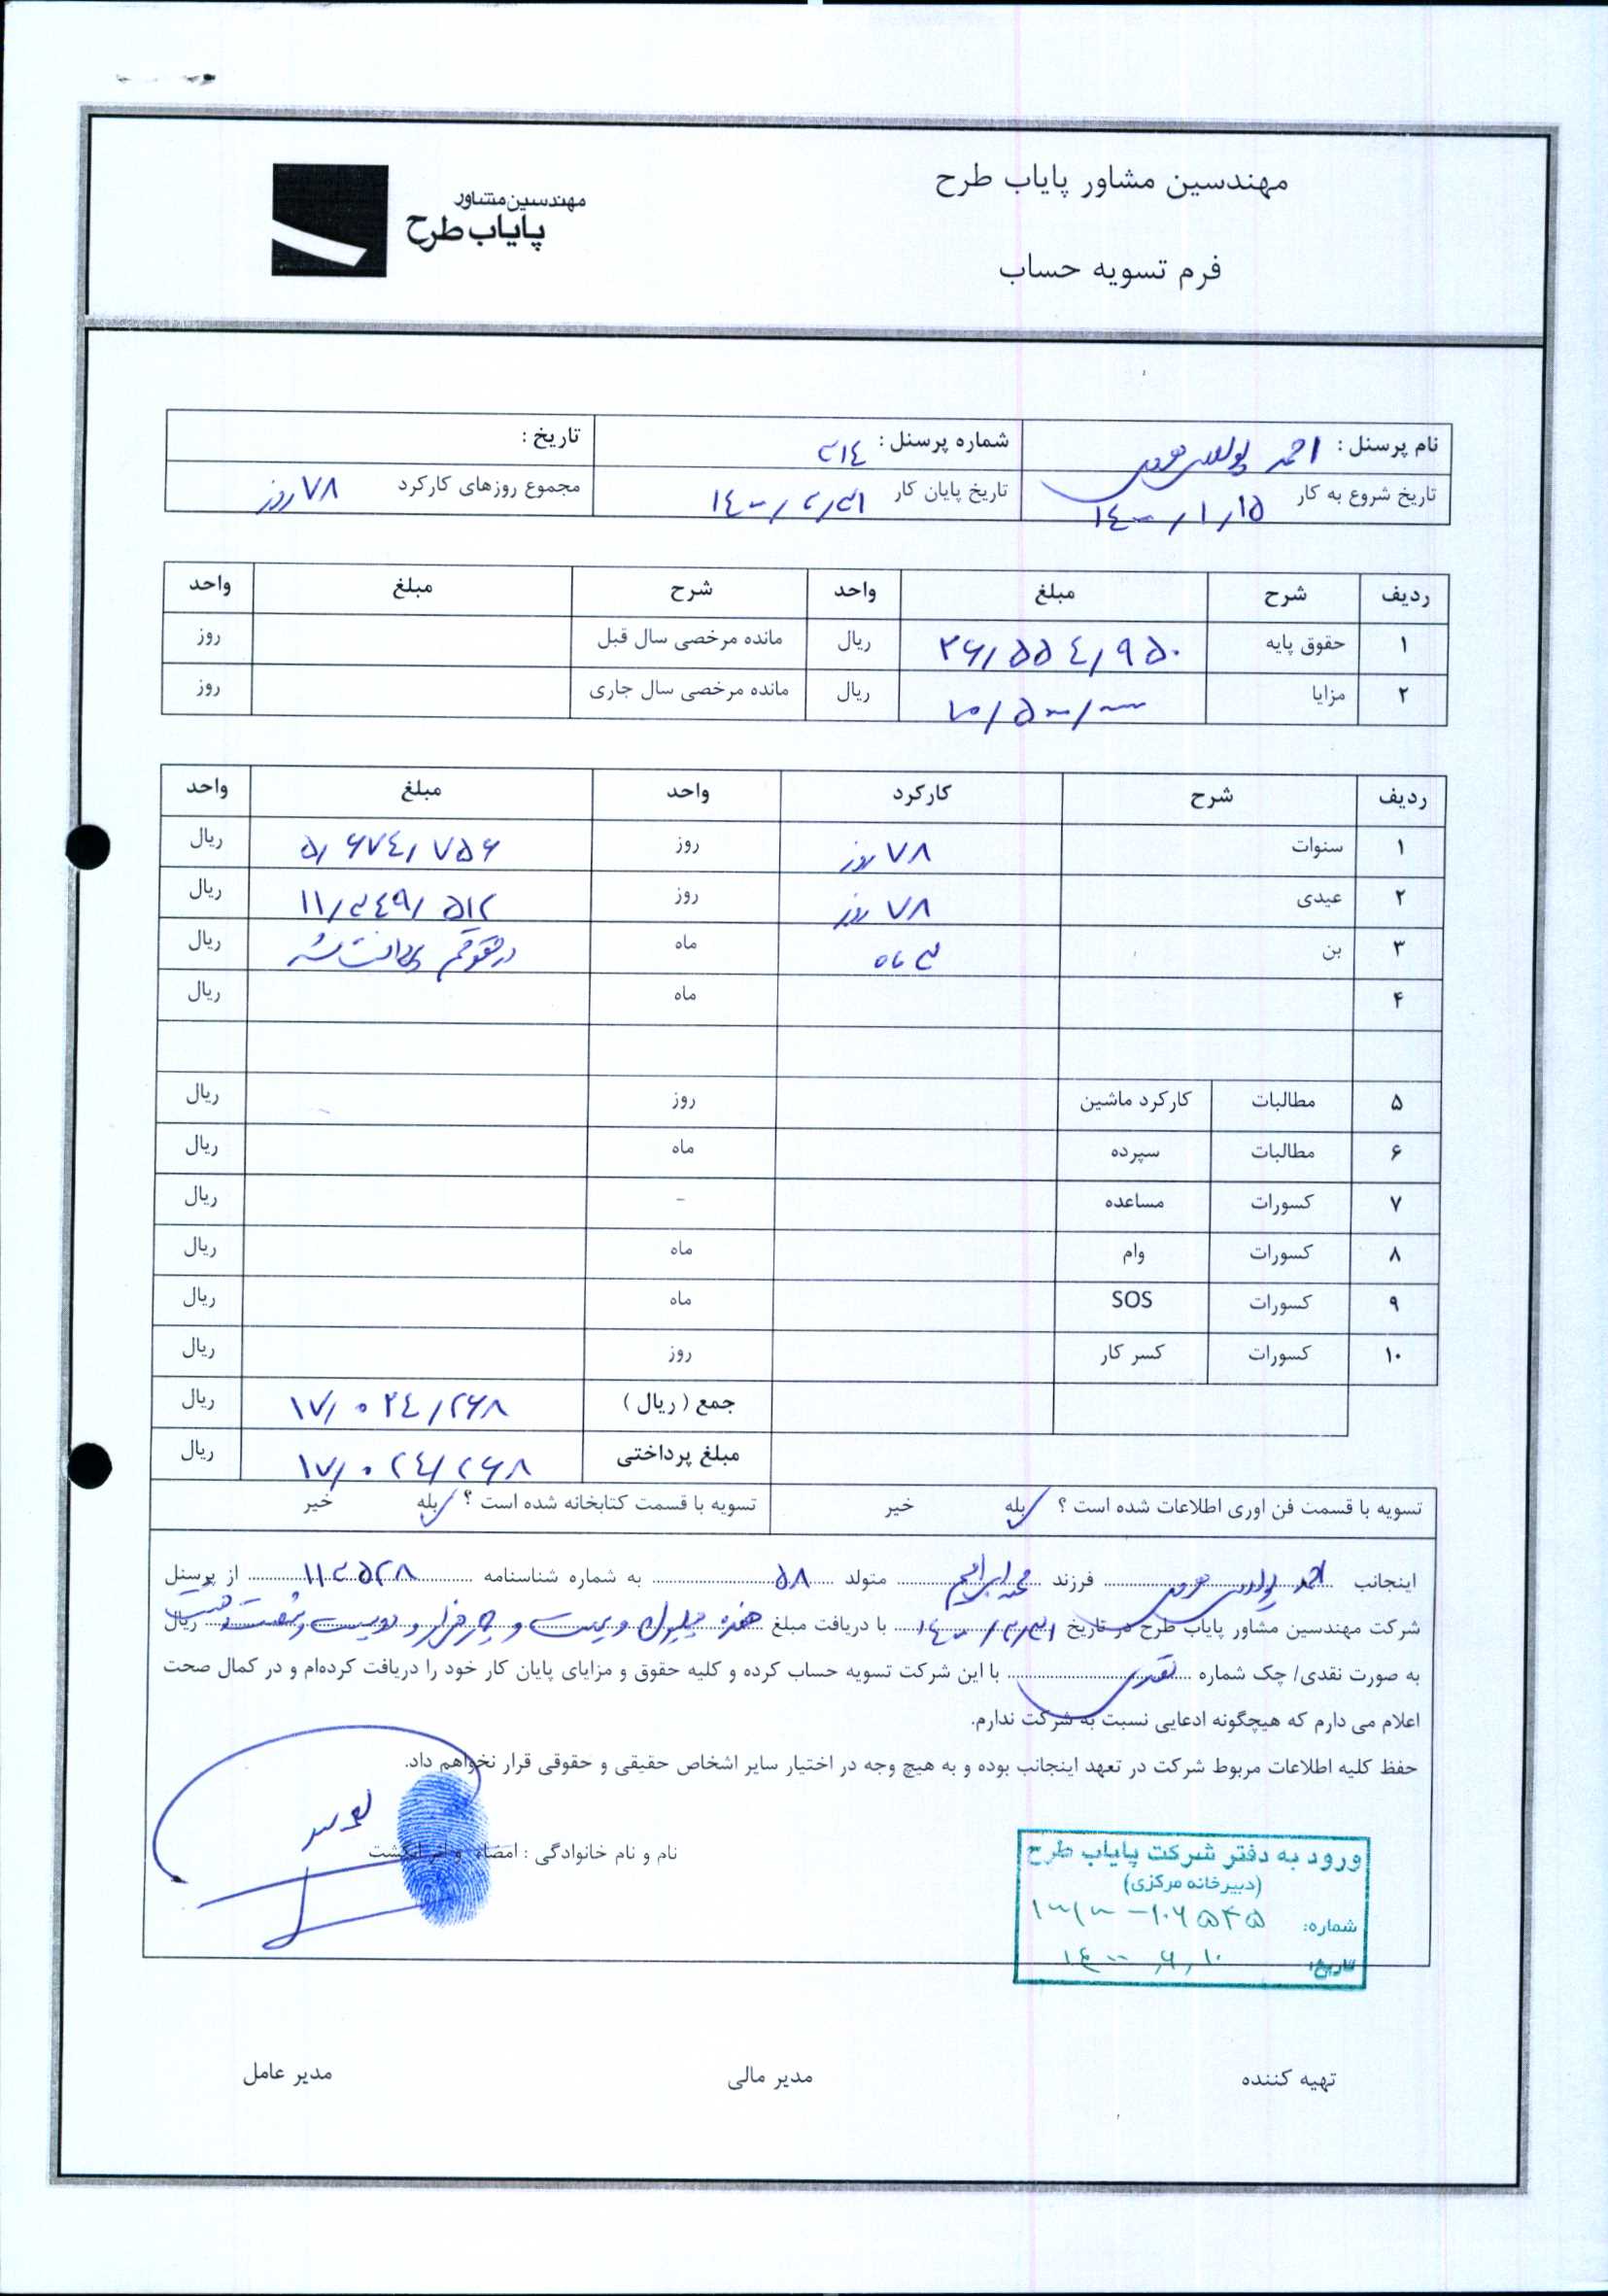 مهندسین مشاور پایاب طرح
مهندسین مشاور
پایاب طرح
فرم تسویه حساب
نام پرسنل : احمد
شماره پرسنل : ۳۱٤
تاریخ :
تاریخ شروع به کار ۱٤۰۰/۱/۱۵
تاریخ پایان کار ۱٤۰۰/۳/۳۱
مجموع روزهای کارکرد ۷۸ روز
ردیف شرح مبلغ واحد شرح مبلغ واحد
۱ حقوق پایه ۲۶/۵۵٤/۹۵۰ ریال مانده مرخصی سال قبل روز
۲ مزایا ریال مانده مرخصی سال جاری روز
ردیف شرح کارکرد واحد مبلغ واحد
۱ سنوات ۷۸ روز روز ۵/۶۷٤/۷۵۶ ریال
۲ عیدی ۷۸ روز روز ۱۱/۳٤۹/۵۱۲ ریال
۳ بن ۳ ماه ماه در حقوقم شد ریال
۴ ماه ریال
۵ مطالبات کارکرد ماشین روز ریال
۶ مطالبات سپرده ماه ریال
۷ کسورات مساعده - ریال
۸ کسورات وام ماه ریال
۹ کسورات SOS ماه ریال
۱۰ کسورات کسر کار روز ریال
جمع ( ریال ) ۱۷/۰۲٤/۲۶۸ ریال
مبلغ پرداختی ۱۷/۰۲٤/۲۶۸ ریال
تسویه با قسمت فن اوری اطلاعات شده است ؟ بله خیر
تسویه با قسمت کتابخانه شده است ؟ بله خیر
اینجانب احمد فرزند محمدابراهیم متولد ۵۸ به شماره شناسنامه ۱۱۳۵۲۸ از پرسنل
شرکت مهندسین مشاور پایاب طرح در تاریخ ۱٤۰۰/۳/۳۱ با دریافت مبلغ هفده میلیون و بیست و چهار هزار و دویست و شصت و هشت ریال
به صورت نقدی/ چک شماره نقدی با این شرکت تسویه حساب کرده و کلیه حقوق و مزایای پایان کار خود را دریافت کرده‌ام و در کمال صحت
اعلام می دارم که هیچگونه ادعایی نسبت به شرکت ندارم.
حفظ کلیه اطلاعات مربوط شرکت در تعهد اینجانب بوده و به هیچ وجه در اختیار سایر اشخاص حقیقی و حقوقی قرار نخواهم داد.
نام و نام خانوادگی : امضاء و اثر انگشت
ورود به دفتر شرکت پایاب طرح
(دبیرخانه مرکزی)
شماره:
تاریخ: ۱٤۰۰/۶/۱۰
تهیه کننده
مدیر مالی
مدیر عامل